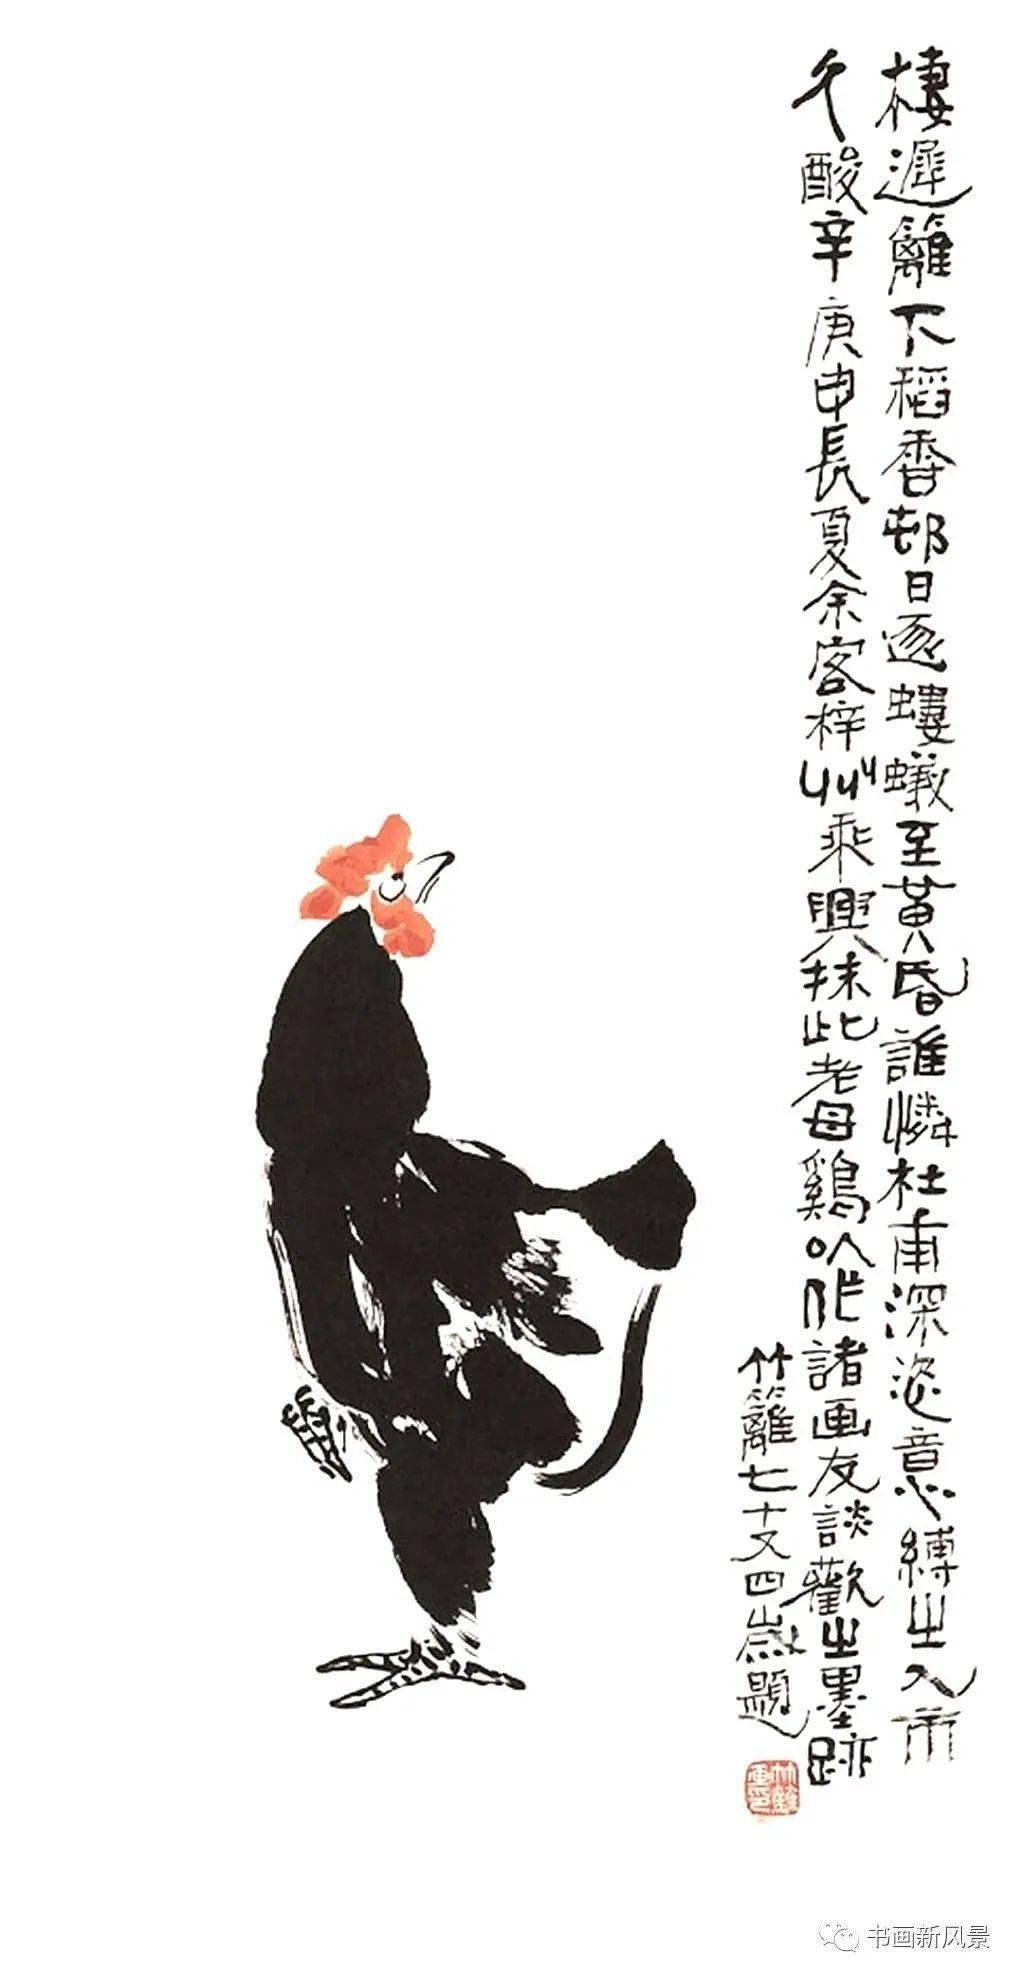 棲遲籬下稻香邨日逐螻蟻至黃昏誰憐杜甫深恣意縛出入市
久酸辛庚申長夏余客梓州乘興抹此老母鷄以作諸画友談歡之墨跡
竹籬七十又四歲題
书画新风景